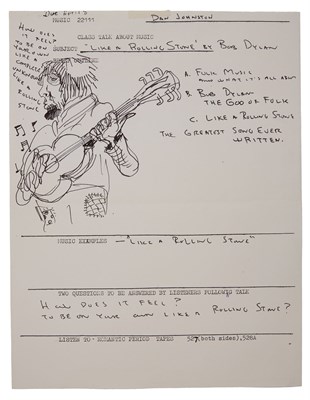 DAN JOHNSTON
MUSIC 22111
CLASS TALK ABOUT MUSIC
SUBJECT "LIKE A ROLLING STONE" BY BOB DYLAN
HOW DOES
IT FEEL?
TO BE ON
YOUR OWN
LIKE A
COMPLETE
UNKNOWN
LIKE A
ROLLING
STONE
A. FOLK MUSIC
AND WHAT IT'S ALL ABOUT
B. BOB DYLAN
THE GOD OF FOLK
C. LIKE A ROLLING STONE
THE GREATEST SONG EVER
WRITTEN.
MUSIC EXAMPLES — "LIKE A ROLLING STONE"
TWO QUESTIONS TO BE ANSWERED BY LISTENERS FOLLOWING TALK
HOW DOES IT FEEL?
TO BE ON YOUR OWN LIKE A ROLLING STONE?
LISTEN TO - ROMANTIC PERIOD TAPES 527(both sides),528A